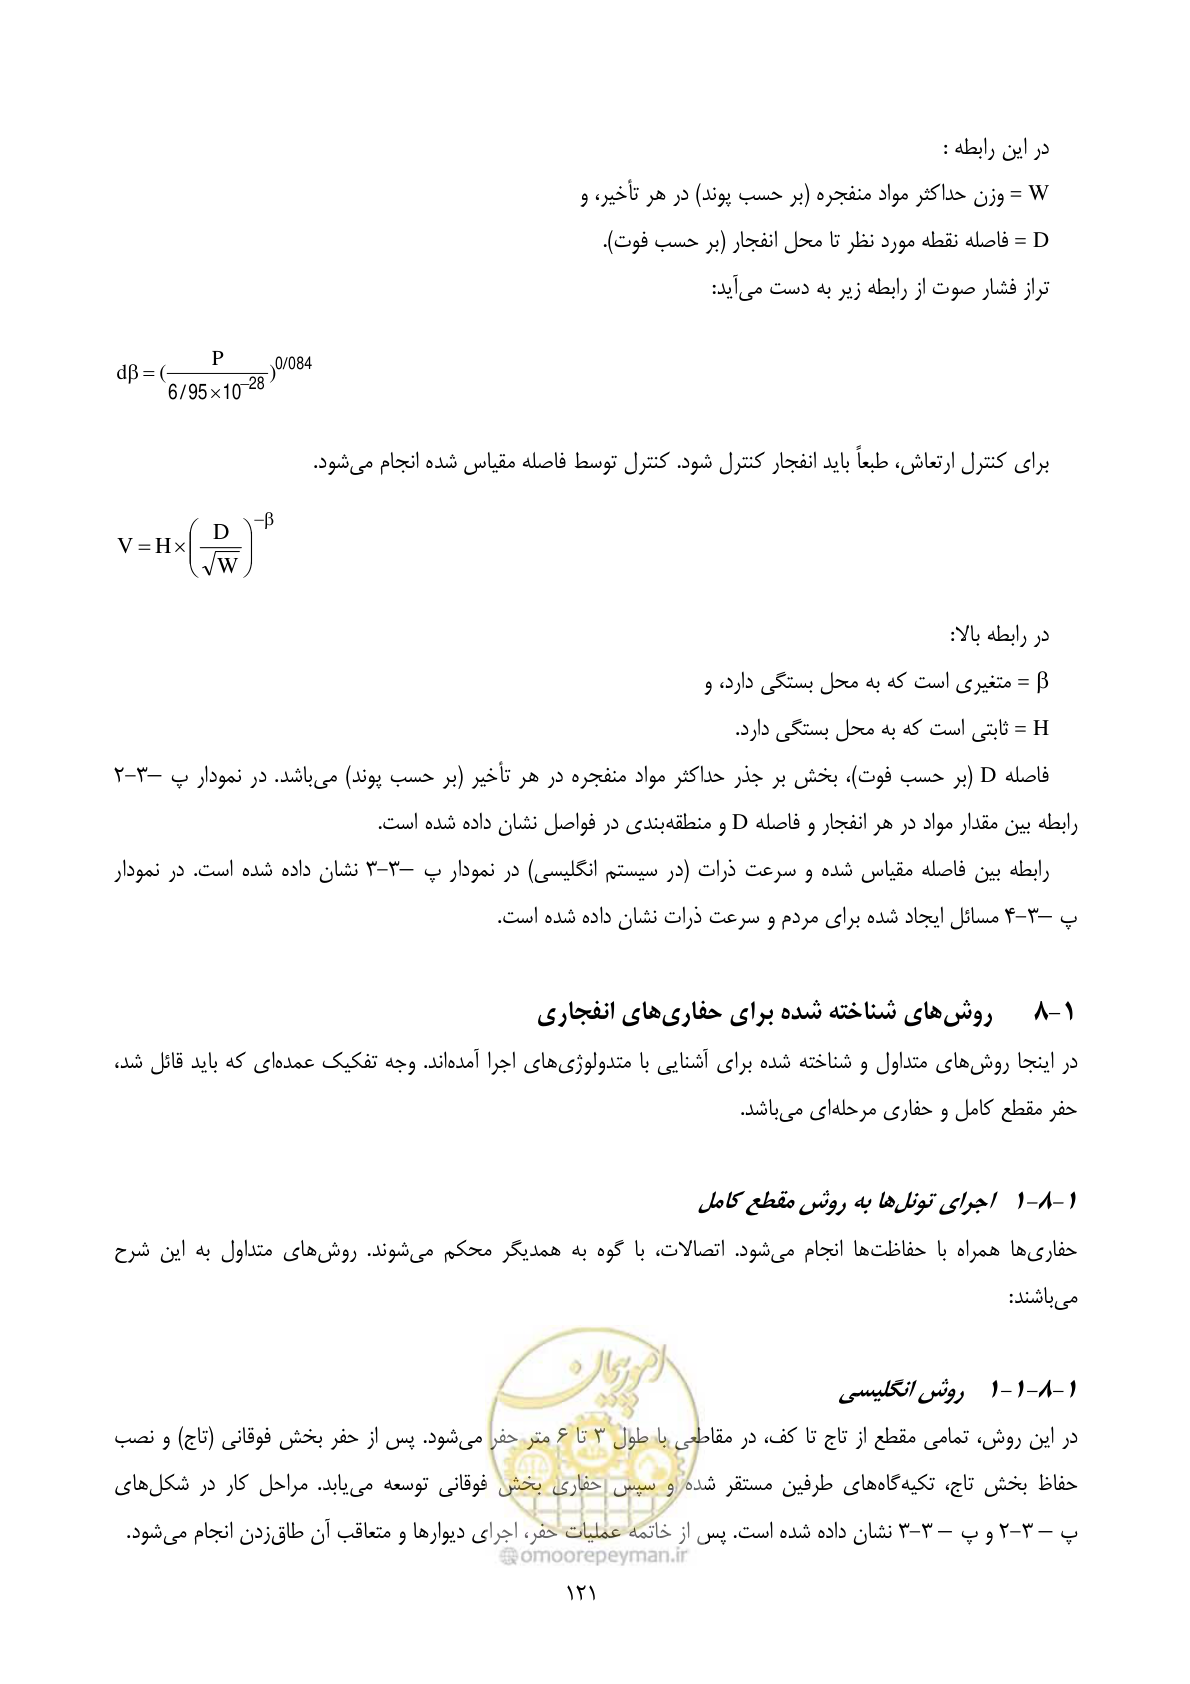 در این رابطه :
W = وزن حداکثر مواد منفجره (بر حسب پوند) در هر تأخیر، و
D = فاصله نقطه مورد نظر تا محل انفجار (بر حسب فوت).
تراز فشار صوت از رابطه زیر به دست می‌آید:
dβ = (P / 6/95×10^−28)^0/084
برای کنترل ارتعاش، طبعاً باید انفجار کنترل شود. کنترل توسط فاصله مقیاس شده انجام می‌شود.
V = H × (D / √W)^−β
در رابطه بالا:
β = متغیری است که به محل بستگی دارد، و
H = ثابتی است که به محل بستگی دارد.
فاصله D (بر حسب فوت)، بخش بر جذر حداکثر مواد منفجره در هر تأخیر (بر حسب پوند) می‌باشد. در نمودار پ –۳–۲
رابطه بین مقدار مواد در هر انفجار و فاصله D و منطقه‌بندی در فواصل نشان داده شده است.
رابطه بین فاصله مقیاس شده و سرعت ذرات (در سیستم انگلیسی) در نمودار پ –۳–۳ نشان داده شده است. در نمودار
پ –۳–۴ مسائل ایجاد شده برای مردم و سرعت ذرات نشان داده شده است.
۱–۸ روش‌های شناخته شده برای حفاری‌های انفجاری
در اینجا روش‌های متداول و شناخته شده برای آشنایی با متدولوژی‌های اجرا آمده‌اند. وجه تفکیک عمده‌ای که باید قائل شد،
حفر مقطع کامل و حفاری مرحله‌ای می‌باشد.
۱–۸–۱ اجرای تونل‌ها به روش مقطع کامل
حفاری‌ها همراه با حفاظت‌ها انجام می‌شود. اتصالات، با گوه به همدیگر محکم می‌شوند. روش‌های متداول به این شرح
می‌باشند:
۱–۸–۱–۱ روش انگلیسی
در این روش، تمامی مقطع از تاج تا کف، در مقاطعی با طول ۳ تا ۶ متر حفر می‌شود. پس از حفر بخش فوقانی (تاج) و نصب
حفاظ بخش تاج، تکیه‌گاه‌های طرفین مستقر شده و سپس حفاری بخش فوقانی توسعه می‌یابد. مراحل کار در شکل‌های
پ – ۳–۲ و پ – ۳–۳ نشان داده شده است. پس از خاتمه عملیات حفر، اجرای دیوارها و متعاقب آن طاق‌زدن انجام می‌شود.
امور پیمان
@omoorepeyman.ir
۱۲۱